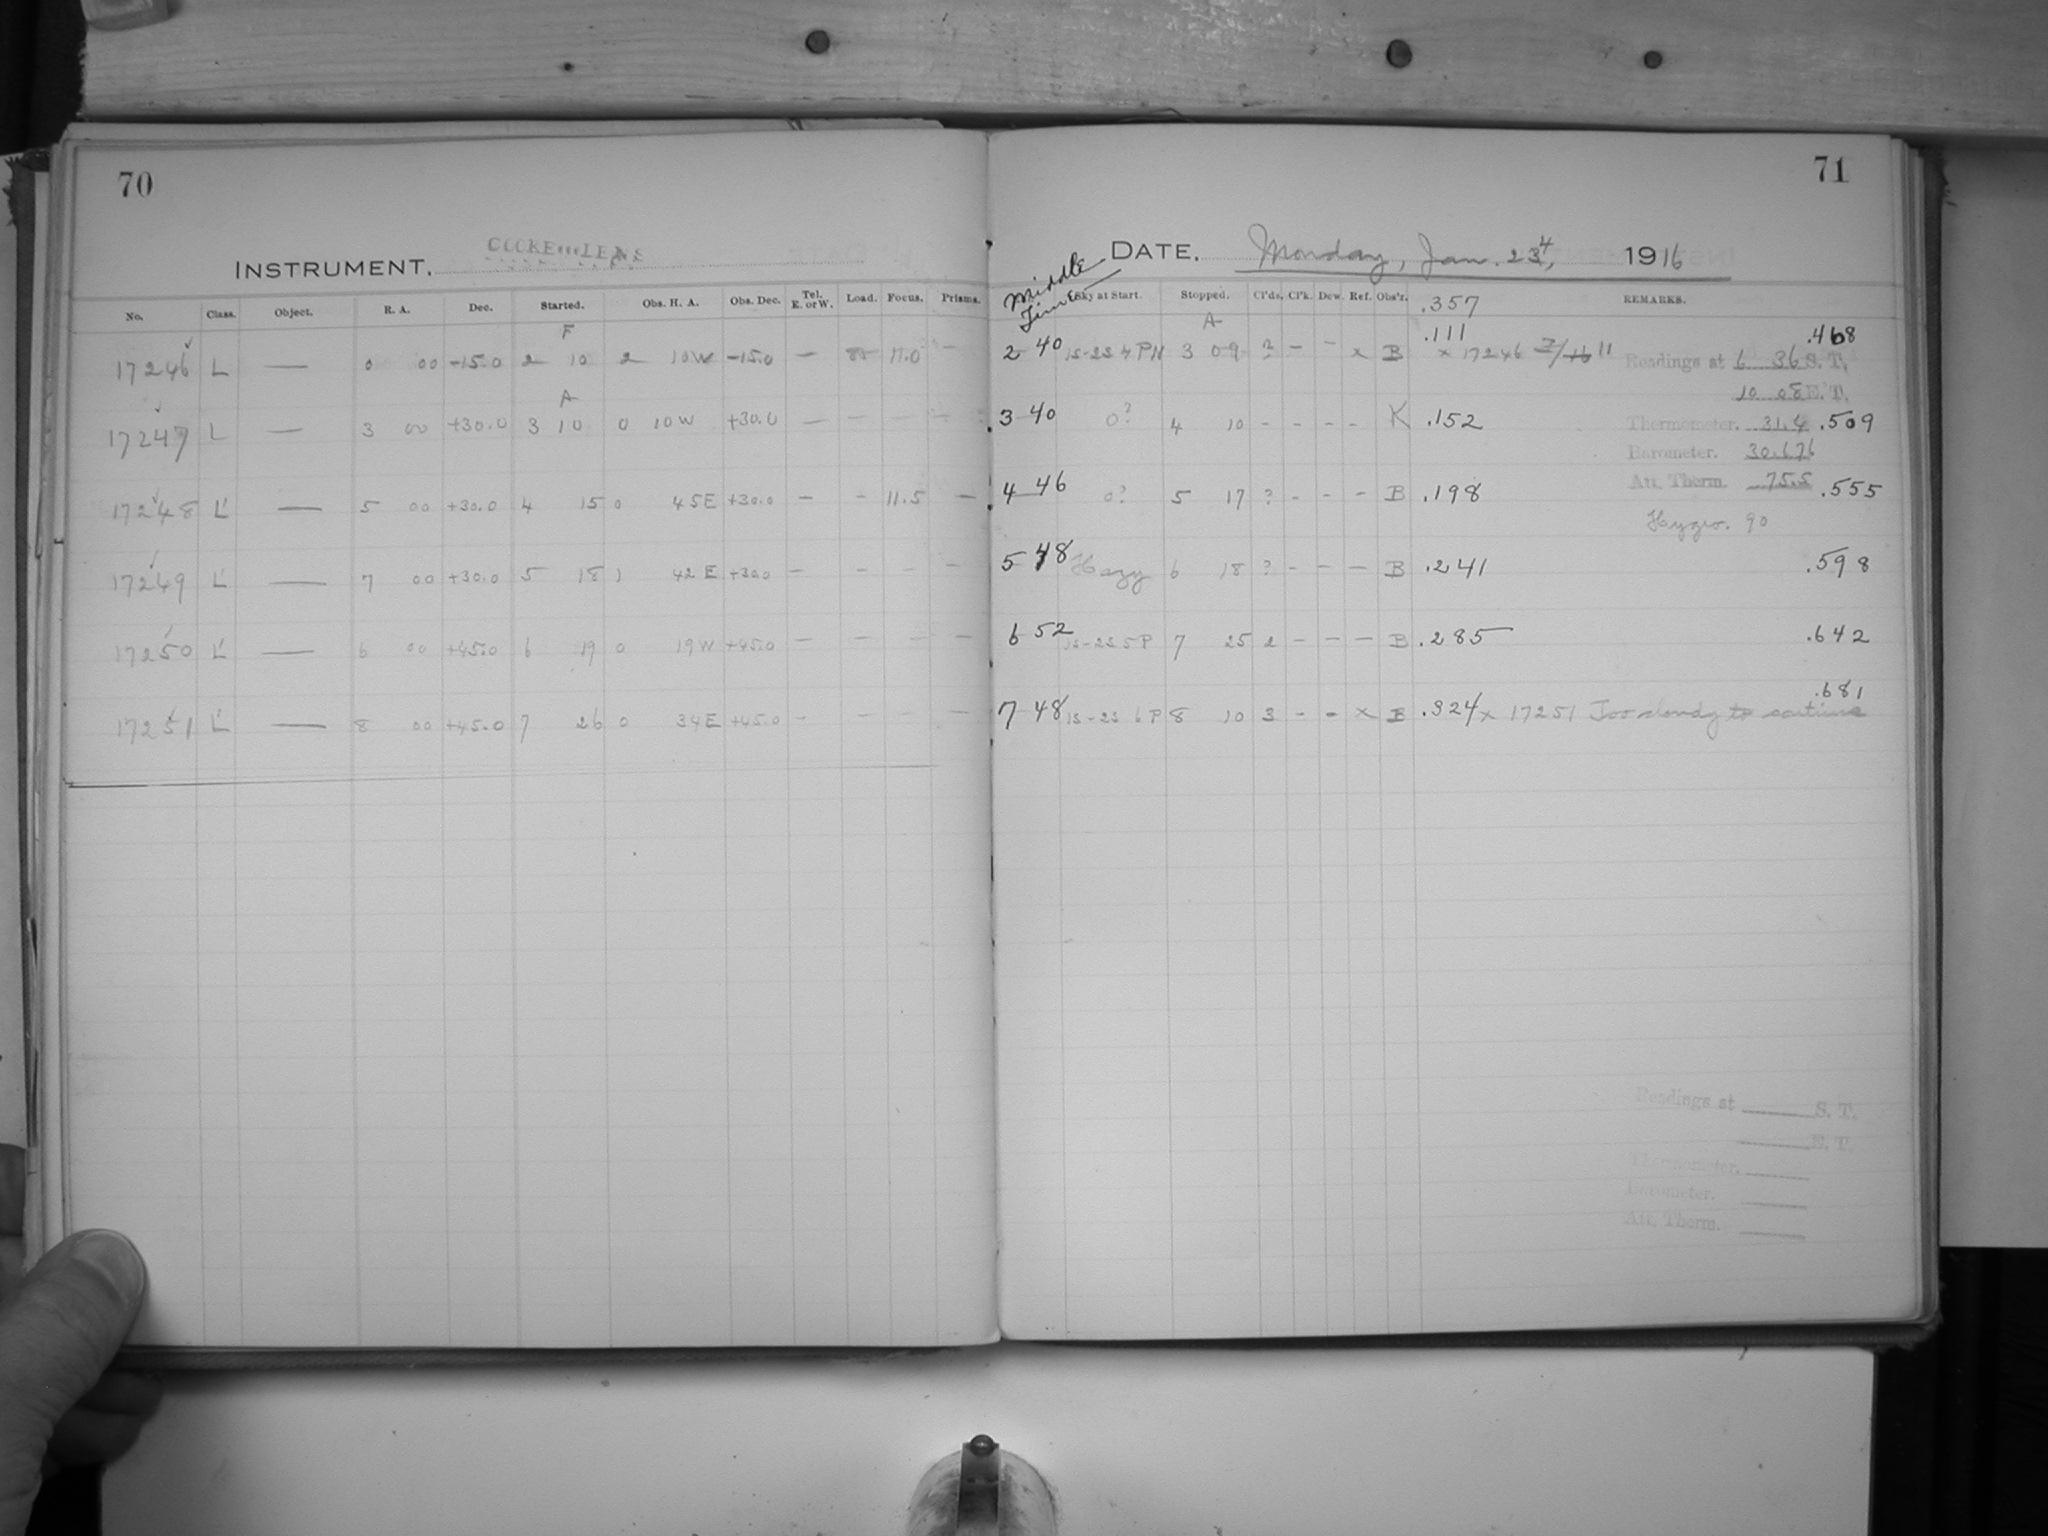 70
INSTRUMENT. COOKE LENS
No. Class. Object. R. A. Dec. Started. Obs. H. A. Obs. Dec. Tel. E. or W. Load. Focus. Prisms.
F
17246 L — 0 00 -15.0 2 10 2 10W -15.0 — 11.0 —
A
17247 L — 3 00 +30.0 3 10 0 10W +30.0 — — — —
17248 L — 5 00 +30.0 4 15 0 45E +30.0 — - 11.5 —
17249 L — 7 00 +30.0 5 18 1 42E +30.0 — — — —
17250 L — 6 00 +45.0 6 19 0 19W +45.0 — — — —
17251 L — 8 00 +45.0 7 26 0 34E +45.0 - — — —
71
DATE. Monday, Jan. 234, 1916
Middle Time Sky at Start. Stopped. Cl'ds. Cl'k. Dew. Ref. Obs'r. .357 REMARKS.
A .111 .468
2 40 1S-2S 4PM 3 09 ? - - x B x 17246 11 Readings at 6 36 S. T.
10 08 E. T.
3 40 0? 4 10 - - - - K .152 Thermometer. 31.4 .509
Barometer. 30.676
4 46 0? 5 17 ? - - - B .198 Att. Therm. 75.5 .555
Hygro. 90
5 48 Hazy 6 18 ? - - — B .241 .598
6 52 1S-2S 5P 7 25 2 - - — B .285 .642
.681
7 48 1S-2S 6P 8 10 3 - - x B .324 x 17251 Too cloudy to continue
Readings at S. T.
E. T.
Thermometer.
Barometer.
Att. Therm.